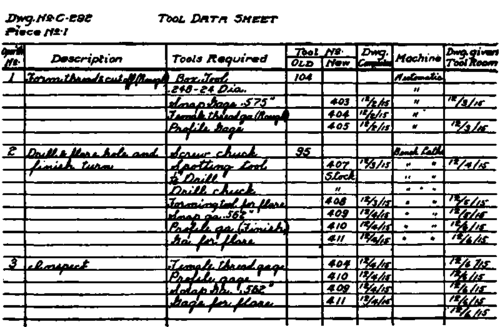 Dwg. No. C-292 TOOL DATA SHEET
Piece No. 1
Operation No. Description Tools Required Tool No. OLD New Dwg. Complete Machine Dwg. given Tool Room
1 Form, thread & cut off (Rough) Box Tool 104 Automatic
.248-24 Dia. "
Snap Gage .575" 403 12/2/15 " 12/3/15
Female thread ga (Rough) 404 12/2/15 "
Profile Gage 405 12/2/15 12/3/15
2 Drill & flare hole and Screw chuck 95 Bench Lathe
finish turn Spotting Tool 407 12/3/15 " " 12/4/15
Drill Stock " "
Drill chuck " " "
Forming tool for flare 408 12/3/15 " " 12/5/15
Snap ga .562" 409 12/4/15 " " 12/5/15
Profile ga (Finish) 410 12/4/15 " " 12/6/15
Ga for flare 411 12/4/15 " " 12/6/15
3 Inspect Female thread gage 404 12/4/15
Profile gage 410 12/4/15 12/6/15
Snap Ga. .562" 409 12/4/15 12/6/15
Gage for flare 411 12/4/15 12/6/15
12/6/15